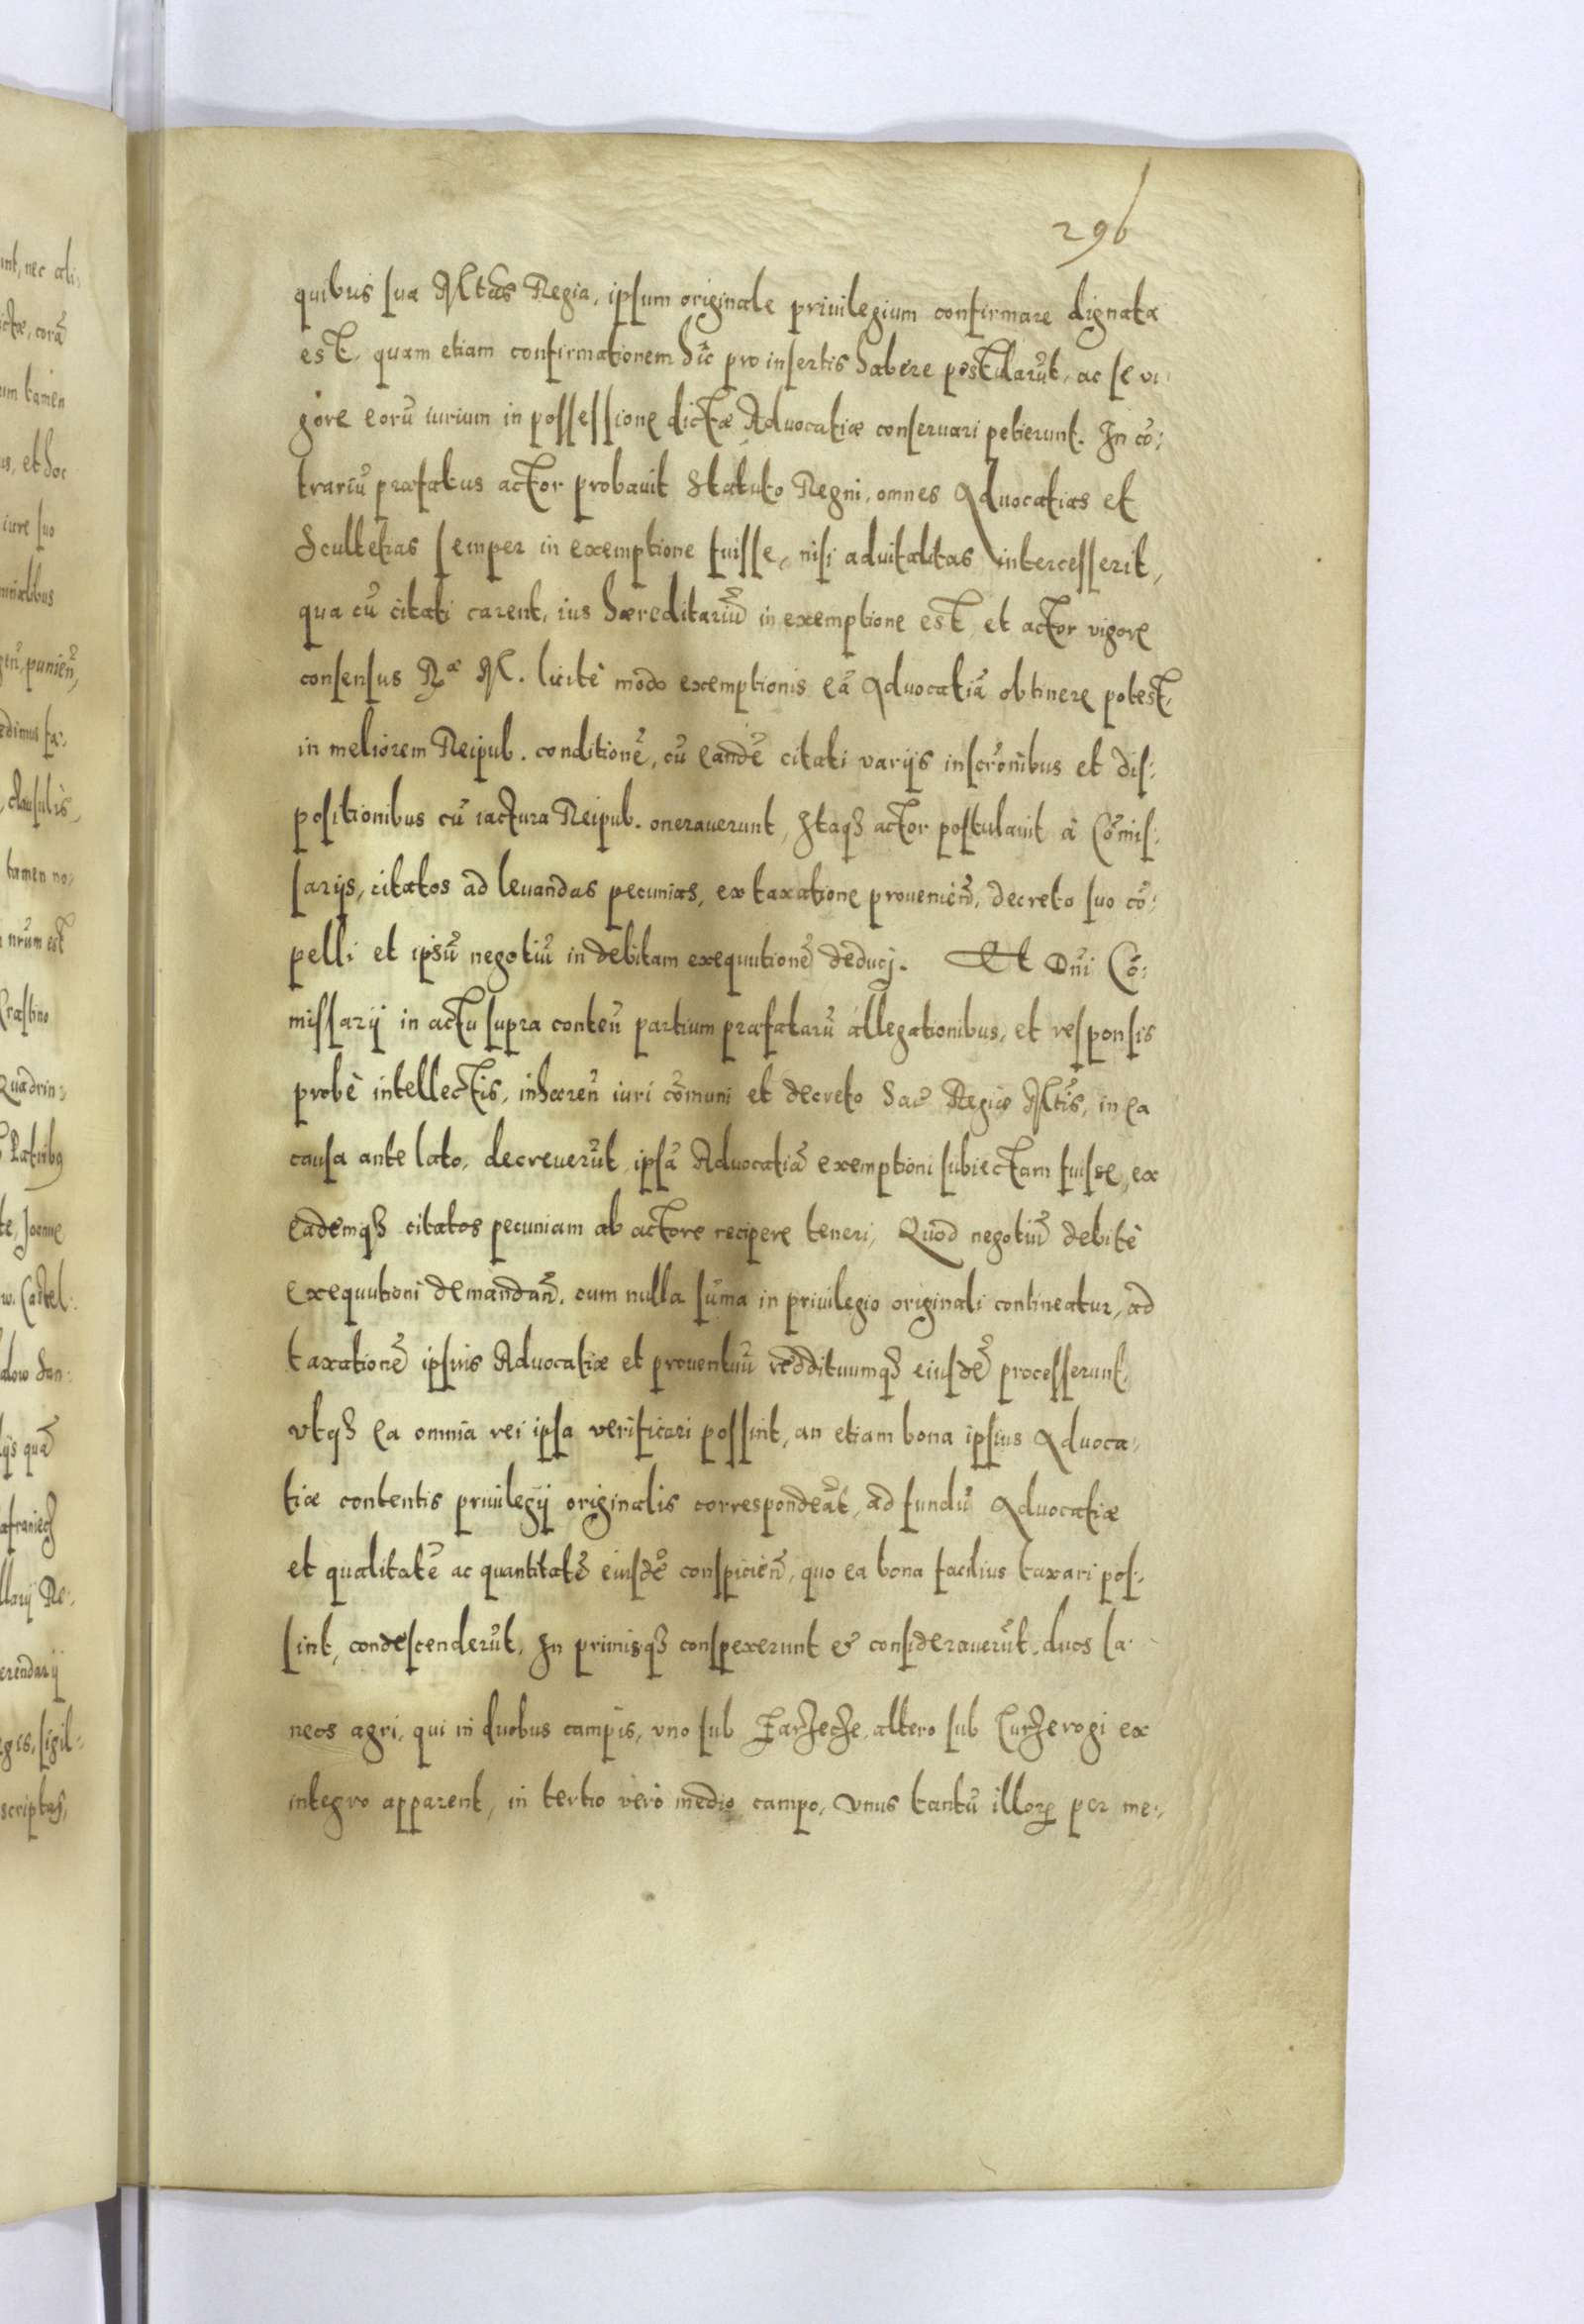 296
quibus sua Mtas Regia, ipsum originale priuilegium confirmare dignata
est, quam etiam confirmationem hic pro insertis habere postularūt, ac se vi:
gore eorū iurium in possessione dictæ Aduocatiæ conseruari petierunt. In cō:
trariū præfatus actor probauit Statuto Regni, omnes Aduocatias et
Scultetias semper in exemptione fuisse, nisi aduitalitas intercesserit,
qua cū citati carent, ius hæreditariū in exemptione est et actor vigore
consensus Rᵃ M. licitè modo exemptionis eā Aduocatiā obtinere potest,
in meliorem Reipub. conditionē, cū eandē citati varijs inscrōnibus et dis:
positionibus cū iactura Reipub. onerauerunt, Itaqȝ actor postulauit à Cōmis:
sarijs, citatos ad leuandas pecunias, ex taxatione prouenień, decreto suo cō:
pelli et ipsū negotiū in debitam exequutionē deducj. Et Dn̄i Cō:
missarij in actu supra conten̄ partium præfatarū allegationibus, et responsis
probè intellectis, inhæren̄ iuri cōmuni et decreto Sac Regiæ Mtis, in ea
causa ante lato, decreuerūt ipsā Aduocatiā exemptioni subiectam fuisse, ex
eademqȝ citatos pecuniam ab actore recipere teneri, Quod negotiū debitè
exequutioni demandan̄. cum nulla sūma in priuilegio originali contineatur, ad
taxationē ipsius Aduocatiæ et prouentuū reddituumqȝ eiusdē processerunt,
vtqȝ ea omnia rei ipsa verificari possint, an etiam bona ipsius Aduoca:
tiæ contentis priuilegij originalis correspondeāt, ad fundū Aduocatiæ
et qualitatē ac quantitatē eiusdē conspicien̄, quo ea bona facilius taxari pos:
sint, condescenderūt. In primisqȝ conspexerunt et considerauerūt duos la:
neos agri, qui in duobus campis, vno sub Zarzecze, altero sub Curzerogi ex
integro apparent, in tertio verò medio campo, vnus tantū illorꝝ per me: